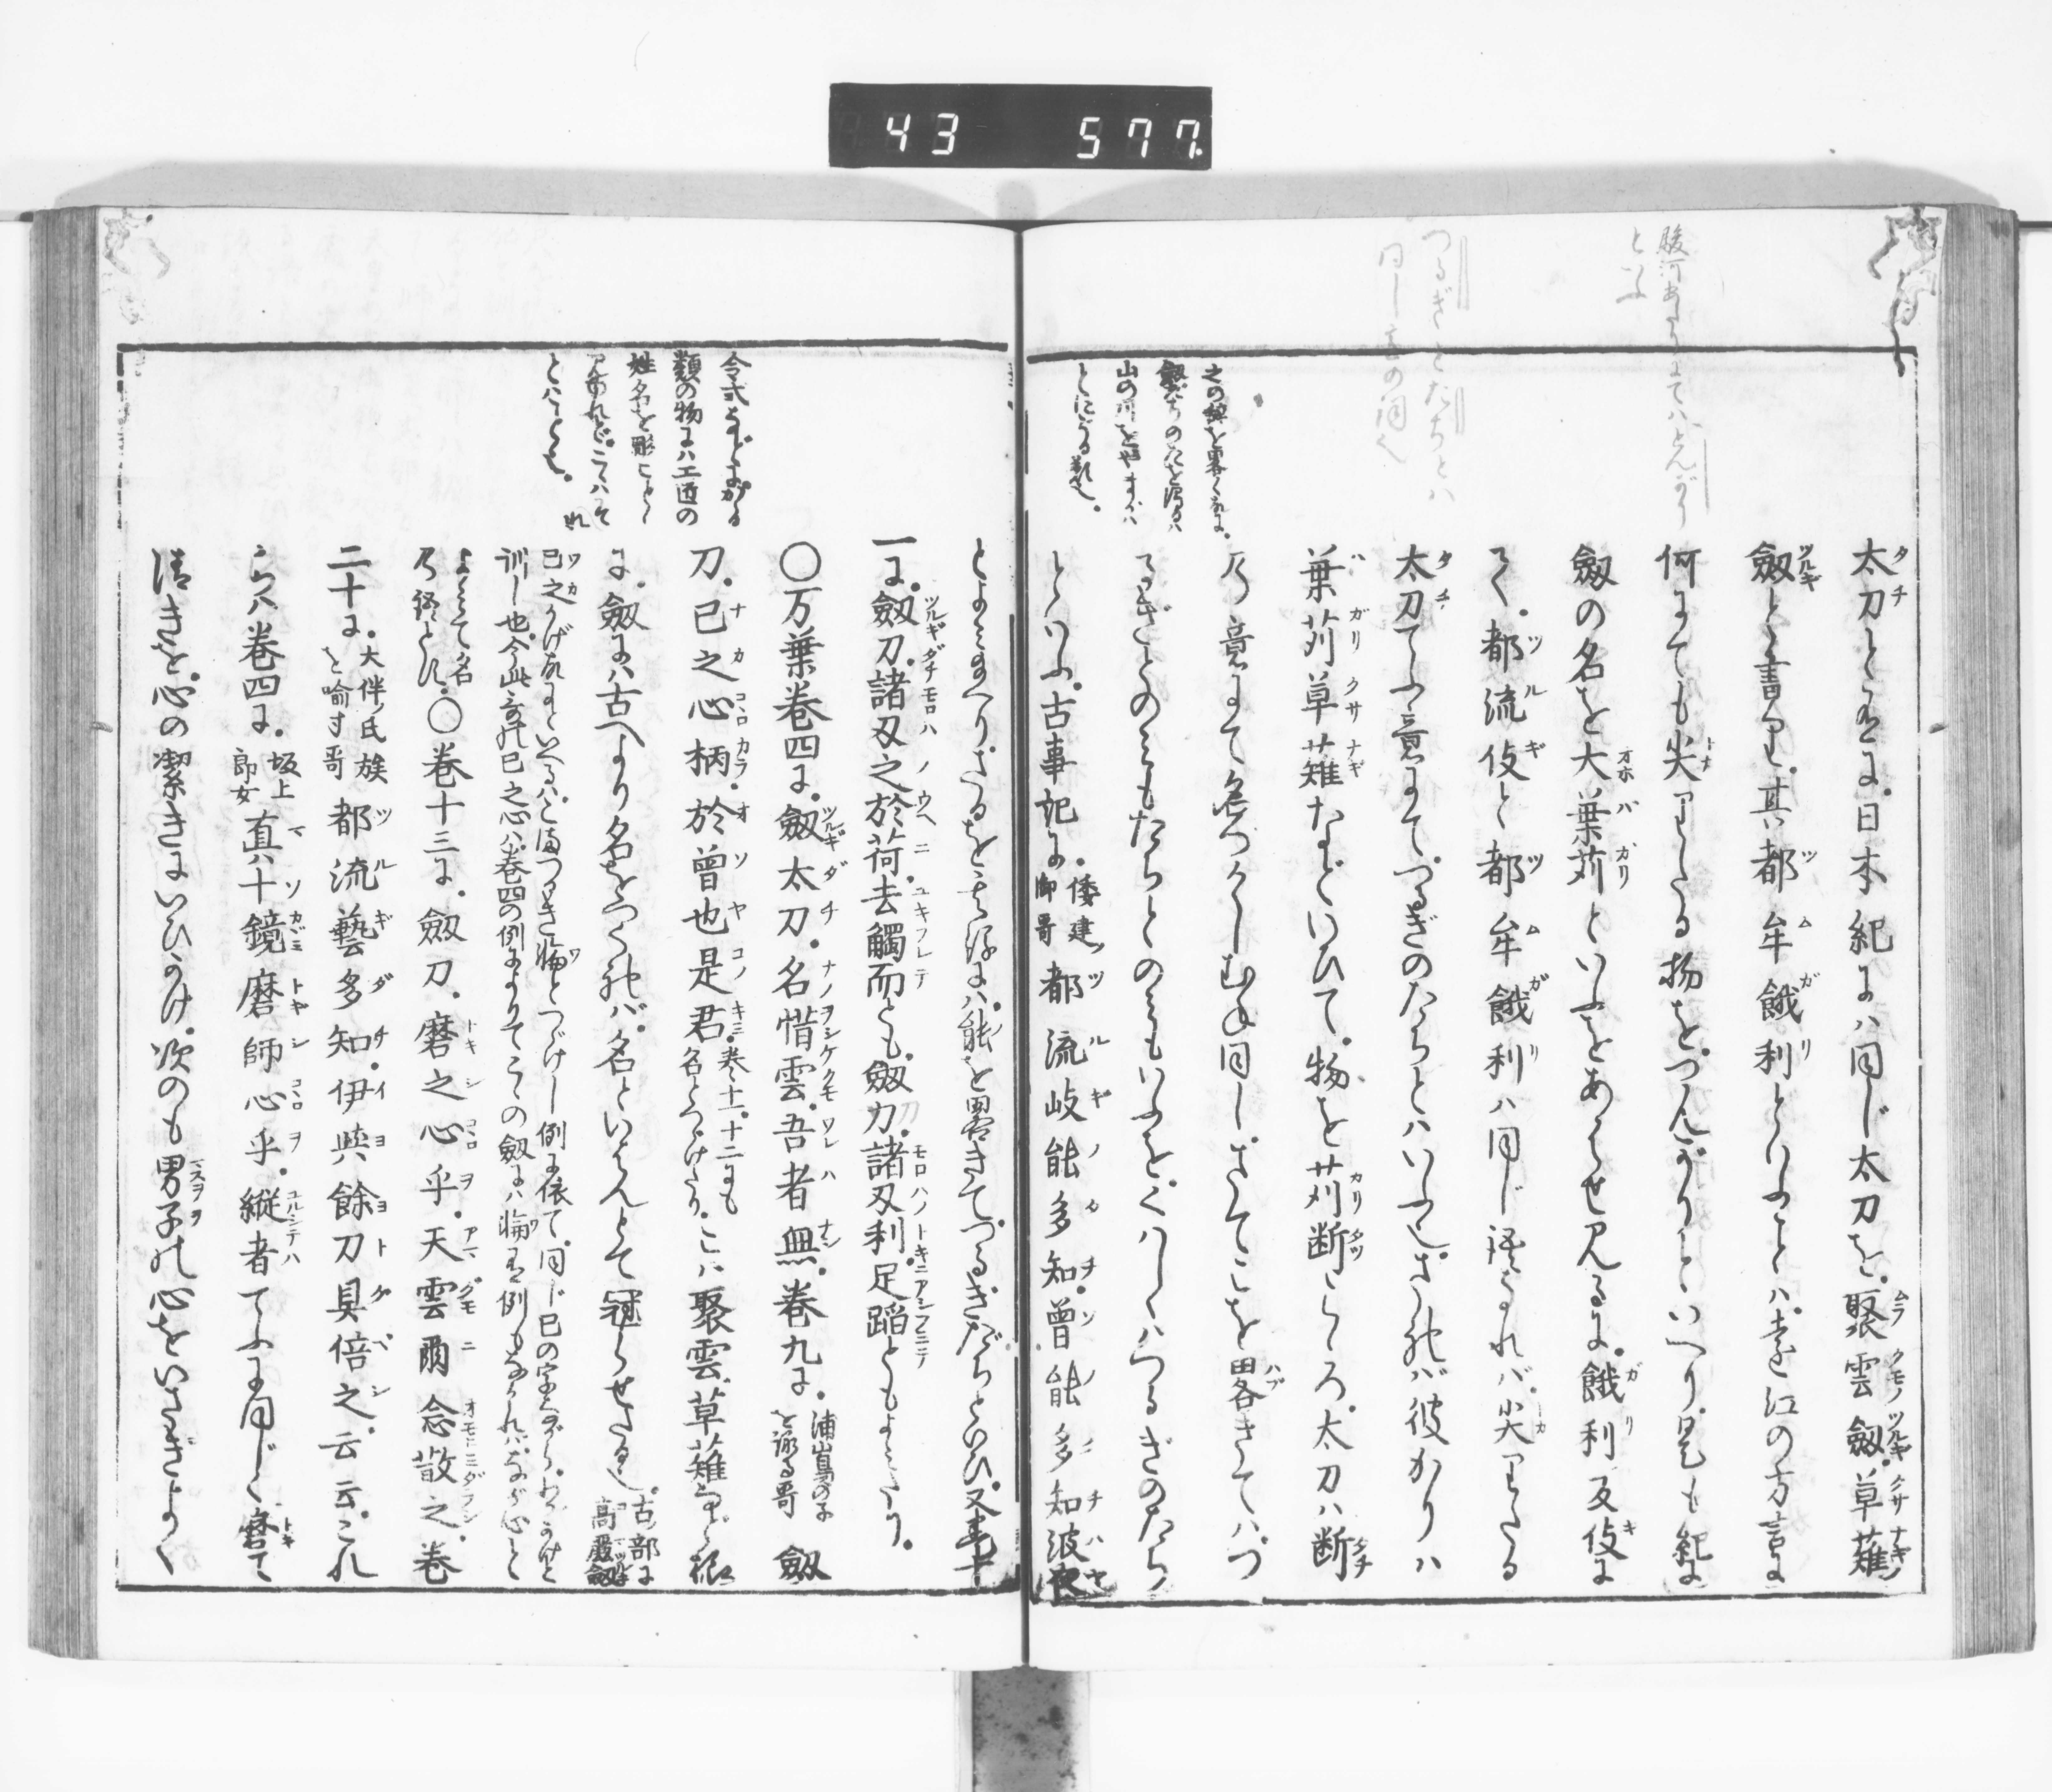 43 577
駿河あたりにてハとんがり
といふ
つるぎとたちとハ
同し言の洞く
太刀とあるを日本紀にハ同じ太刀を聚雲劔草薙
劔とも書り其都牟餓利といふことハ遠江の方言に
何にても尖りたる物をつんがりといへり是も紀に
劔の名を大葉苅といふをあはせ見るに餓利反伎に
て都流伎と都牟餓利ハ同じ語なれバ尖りたる
太刀てふ意にてつるぎのたちとハいふ也されバ彼かりハ
葉苅草薙などいひて物を苅断こゝろ太刀ハ断
の意にて名づけしむね同しさてこを畧きてハつ
るぎとのみもたちとのみもいふをくはしくハつるぎのたち
といふ古事記に倭建御哥都流岐能多知曽能多知波夜
之の辞を畧くなに
劔だちのたを濁るハ
山の川をやまがハ
といふに
とよみまへりさるを其後にハ能を畧きてつるぎだちといひ又巻十
一に劔刀諸刃之於荷去觸而とも劔刀諸刃利足蹈ともよみたり
〇万葉巻四に劔太刀名惜雲吾者無巻九に浦島の子を詠る哥劔
刀己之心柄於曽也是君巻十一十二にも名とつゞけたりこハ聚雲草薙など
に劔にハ古へより名をつくれバ名といはんとて冠らせたる也古部に高麗劔
己之かげ故にといへるハこまつるぎ𤭖とつゞけし例に依て同じ己の字ながらわがと
訓し也今此哥れ己之心ハ巻四の例によりてこゝの劔にハ𤭖る例もなけれバなが心と
よみて名の語とす〇巻十三に劔刀磨之心乎天雲爾念散之巻
二十に大伴ノ氏族を喩す哥都流藝多知伊與餘刀具倍之云云これ
らハ巻四に坂上郎女真十鏡磨師心乎縦者てふに同じく磨て
清きを心の潔きにいひかけ次のも男子の心をいさぎよく
令式などにかゝる
類の物にハ工匠の
姓名を彫ことゝ
見ゆれどこゝハそれ
とハことも